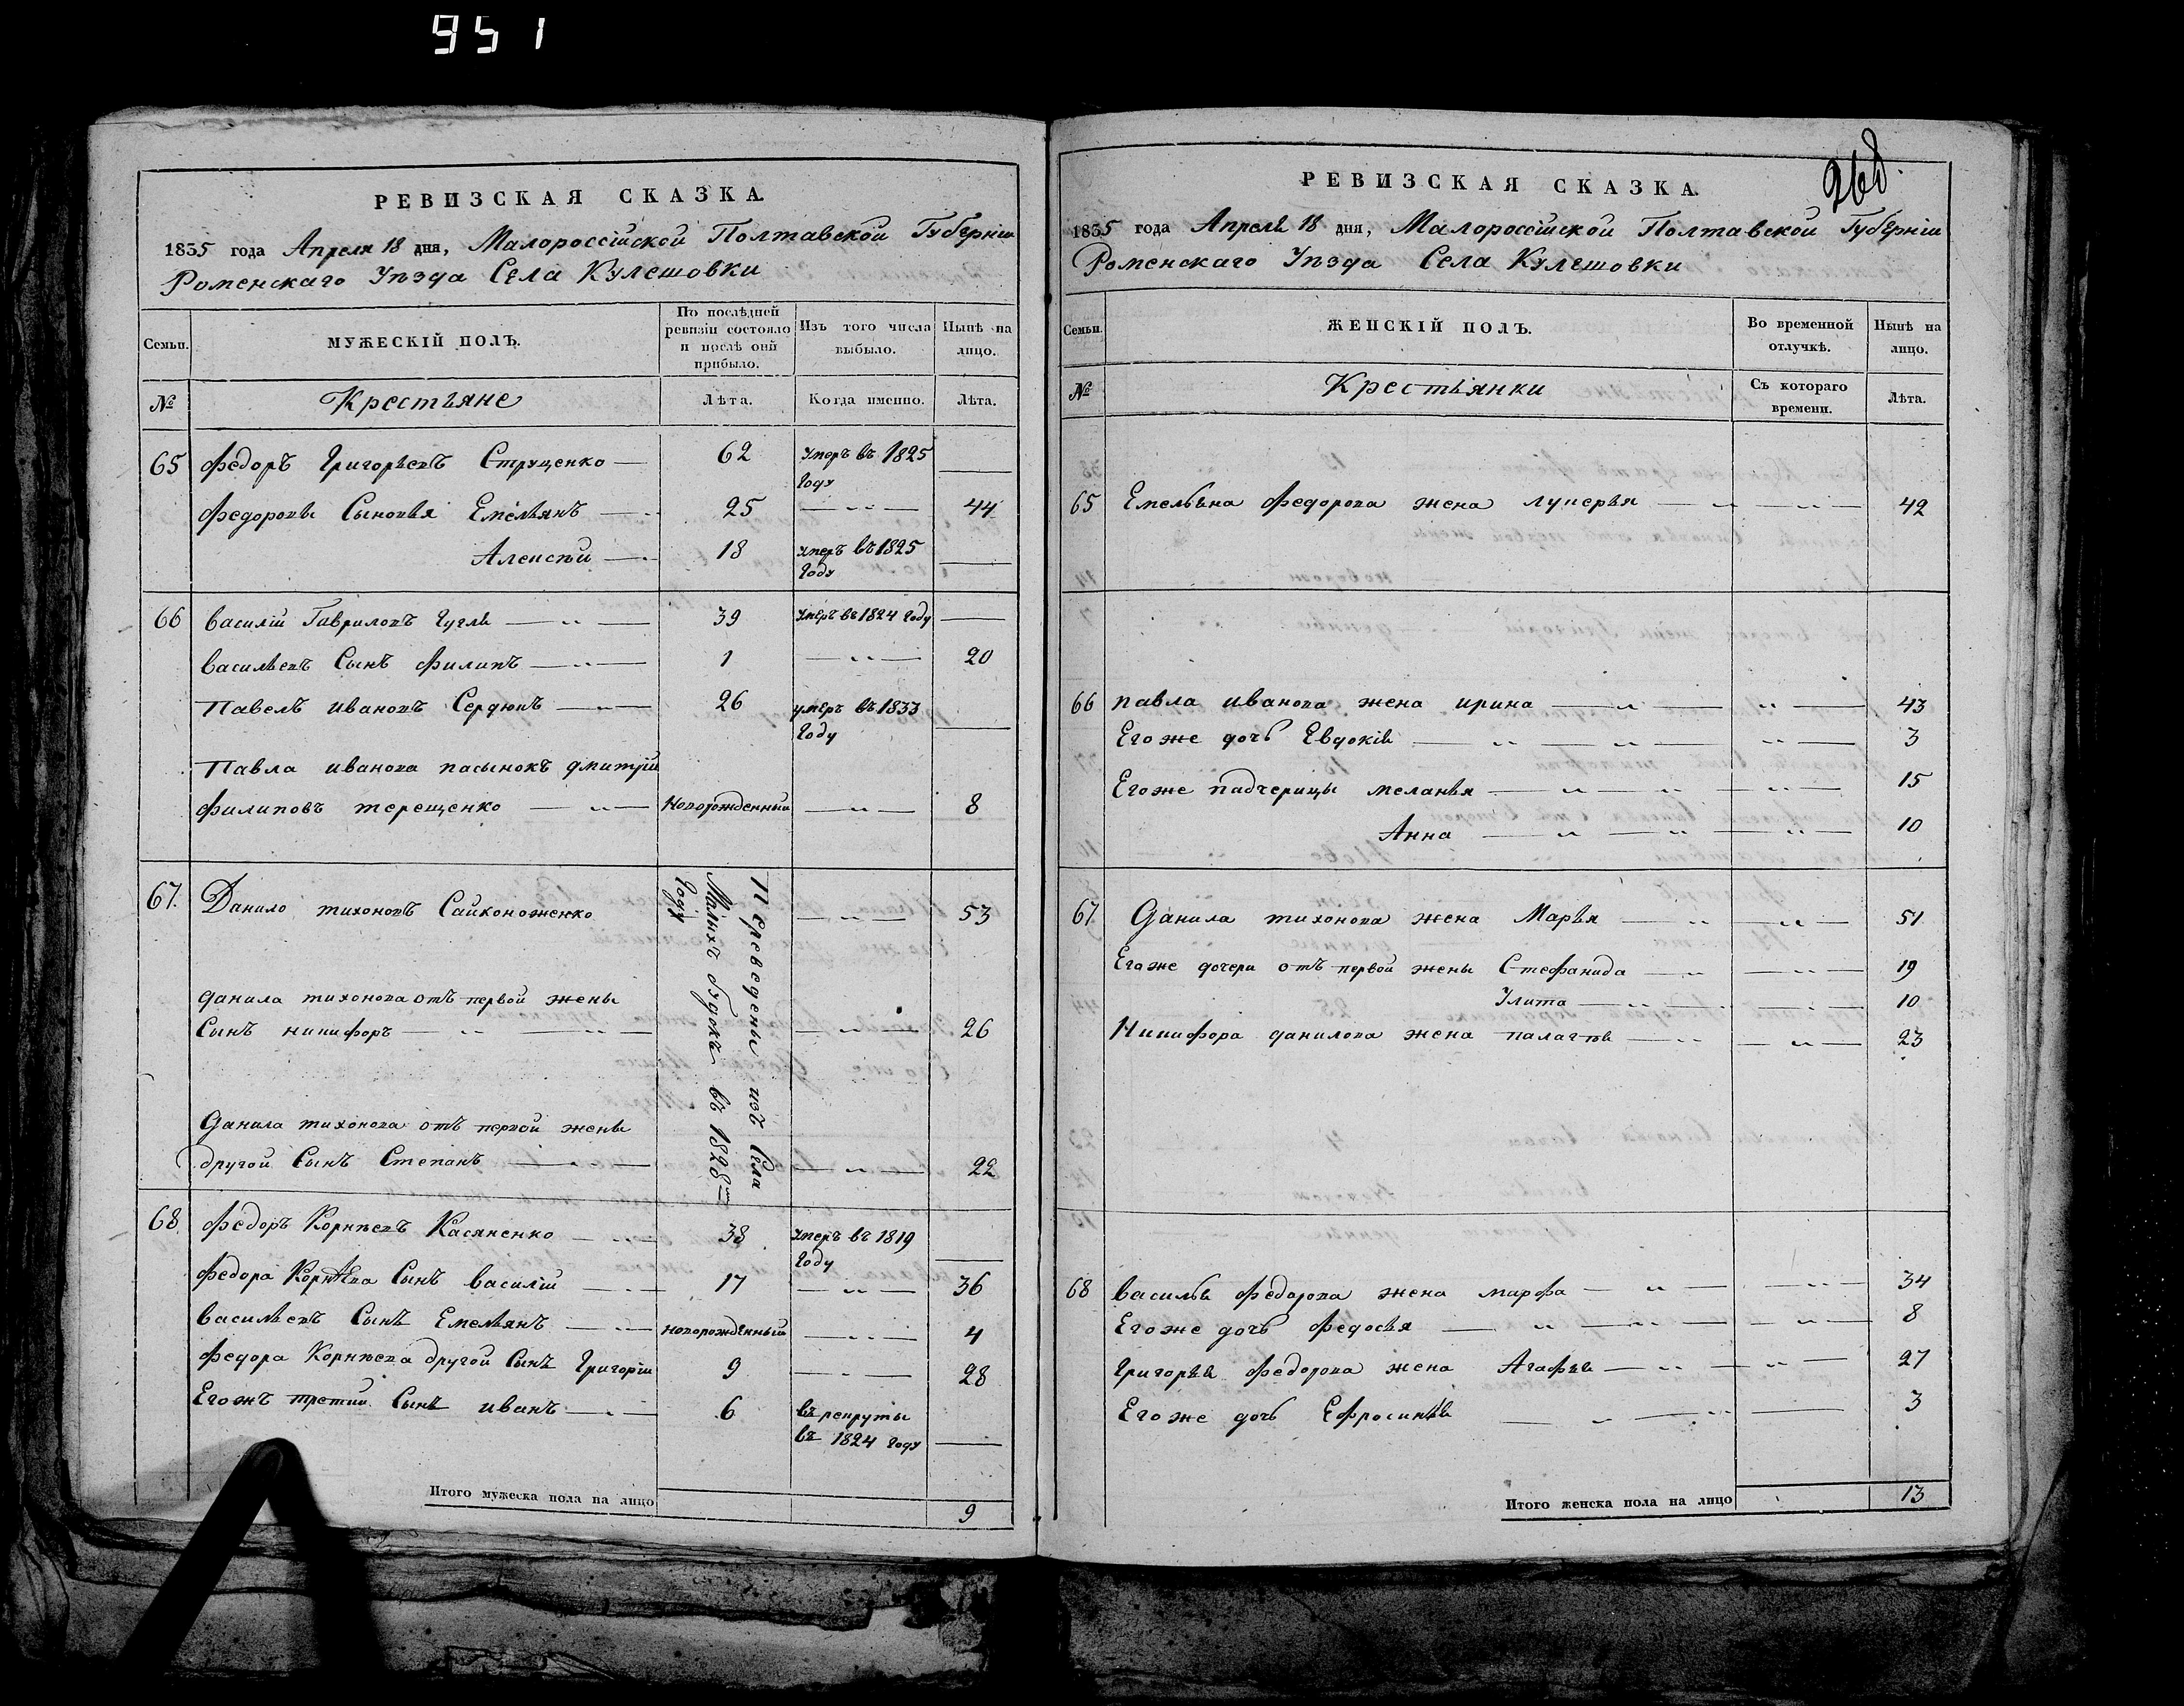 951
РЕВИЗСКАЯ СКАЗКА.
1835 года Апреля 18 дня, Малороссійской Полтавской Губерніи
Роменскаго Уѣзда Села Кулешовки
Семьи.
МУЖЕСКІЙ ПОЛЪ.
По послѣдней ревизіи состояло и послѣ оной прибыло.
Изъ того числа выбыло.
Нынѣ на лицо.
№
Крестьяне
Лѣта.
Когда именно.
Лѣта.
65 Федоръ Григорьевъ Струценко 62 умеръ въ 1825 году
Федоровы Сыновья Емельянъ 25 44
Алексѣй 18 умеръ въ 1825 году
66 Василій Гавриловъ Гугля 39 умеръ въ 1824 году
Васильевъ Сынъ Филипъ 1 20
Павелъ Ивановъ Сердюкъ 26 умеръ въ 1833 году
Павла Иванова пасынокъ Дмитрій
Филиповъ Терещенко Новорожденный 8
67. Данило Тихоновъ Сайконоженко 53
Данила Тихонова отъ первой жены
Сынъ Никифоръ 26
Данила Тихонова отъ первой жены
другой Сынъ Степанъ 22
Переведены изъ Села
Малыхъ Будокъ въ 1828мъ
году
68 Федоръ Корнѣевъ Касяненко 38 умеръ въ 1819 году
Федора Корнѣева Сынъ Василій 17 36
Васильевъ Сынъ Емельянъ новорожденный 4
Федора Корнѣева другой Сынъ Григорій 9 28
Егожъ третій Сынъ Иванъ 6 въ рекруты
въ 1824 году
Итого мужеска пола на лицо
9
268.
РЕВИЗСКАЯ СКАЗКА.
1835 года Апреля 18 дня, Малороссійской Полтавской Губерніи
Роменскаго Уѣзда Села Кулешовки
Семьи.
ЖЕНСКІЙ ПОЛЪ.
Во временной отлучкѣ.
Нынѣ на лицо.
№
Крестьянки
Съ котораго времени.
Лѣта.
65 Емельяна Федорова жена Лукерья 42
66 Павла Иванова жена Ирина 43
Егоже дочь Евдокія 3
Егоже падчерицы Меланья 15
Анна 10
67 Данила Тихонова жена Марья 51
Егоже дочери отъ первой жены Стефанида 19
Улита 10
Никифора Данилова жена Палагѣя 23
68 Василья Федорова жена Марфа 34
Егоже дочь Федосья 8
Григорья Федорова жена Агафья 27
Егоже дочь Ефросинья 3
Итого женска пола на лицо
13